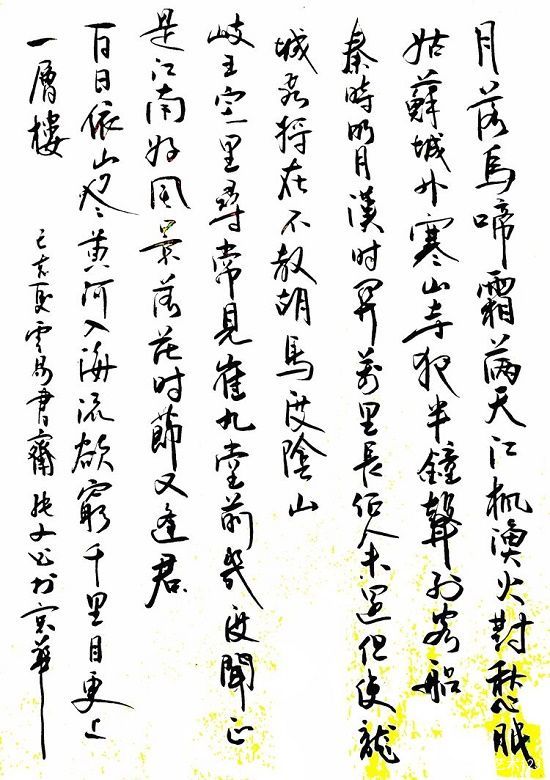 月落烏啼霜滿天江楓漁火對愁眠
姑蘇城外寒山寺夜半鐘聲到客船
秦時明月漢时関萬里長征人未還但使龍
城飛將在不教胡馬度陰山
岐王宅里尋常見崔九堂前幾度聞正
是江南好風景落花时節又逢君
白日依山盡黄河入海流欲窮千里目更上
一層樓
己亥夏雲書齋於京華